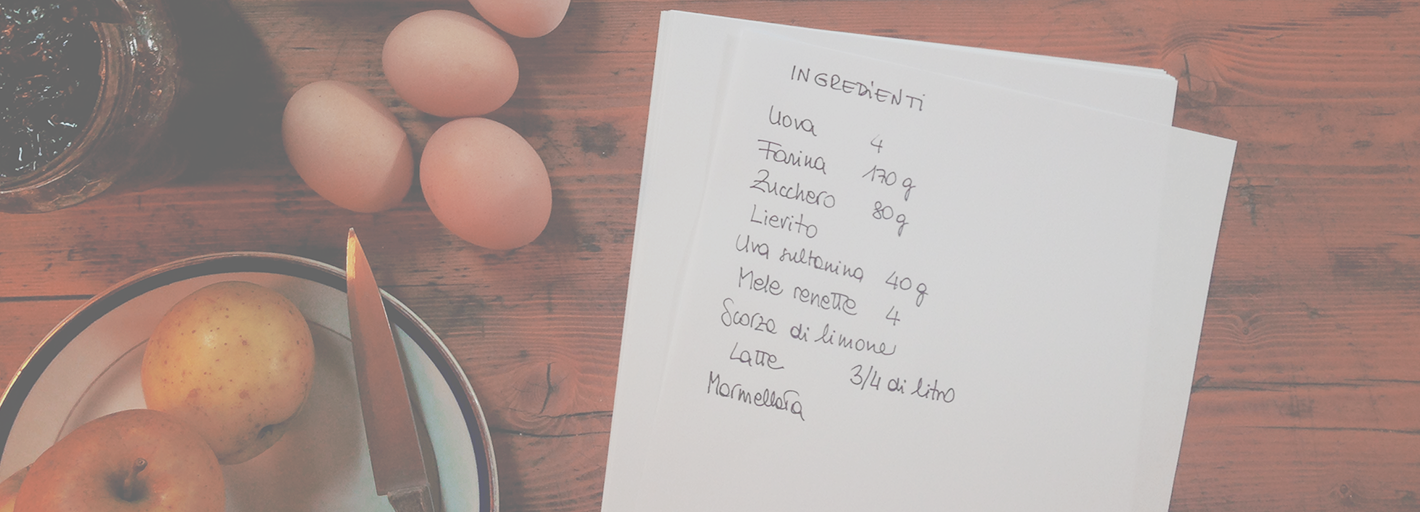 INGREDIENTI
Uova 4
Farina 170 g
Zucchero 80 g
Lievito
Uva sultanina 40 g
Mele renette 4
Scorza di limone
Latte 3/4 di litro
Marmellata